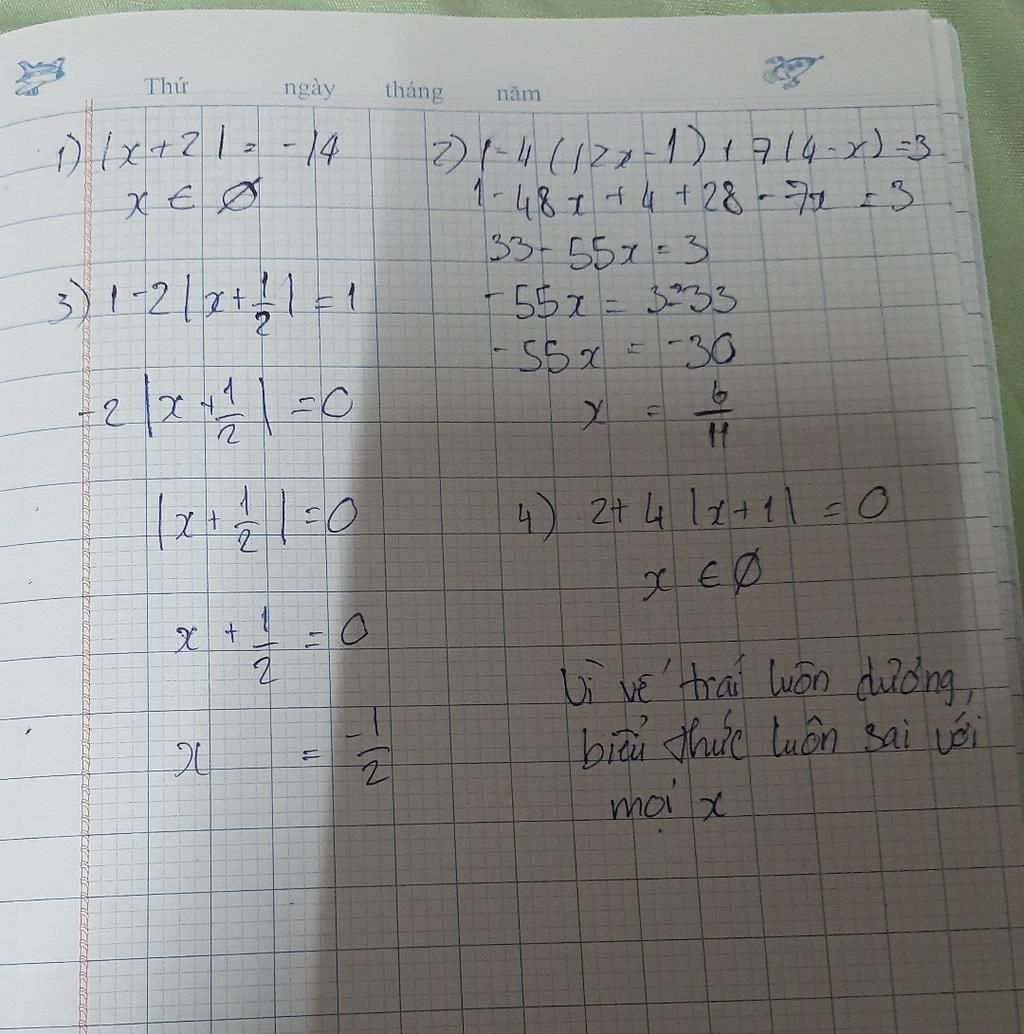 Thứ ngày tháng năm
1) |x+2| = -14
x ∈ ∅
2) 1-4(12x-1)+7(4-x)=3
1-48x+4+28-7x=3
33-55x=3
-55x = 3-33
-55x = -30
x = 6/11
3) 1-2|x+1/2|=1
-2|x+1/2|=0
|x+1/2|=0
x+1/2=0
x = -1/2
4) 2+4|x+1|=0
x ∈ ∅
Vì vế trái luôn dương,
biểu thức luôn sai với
mọi x